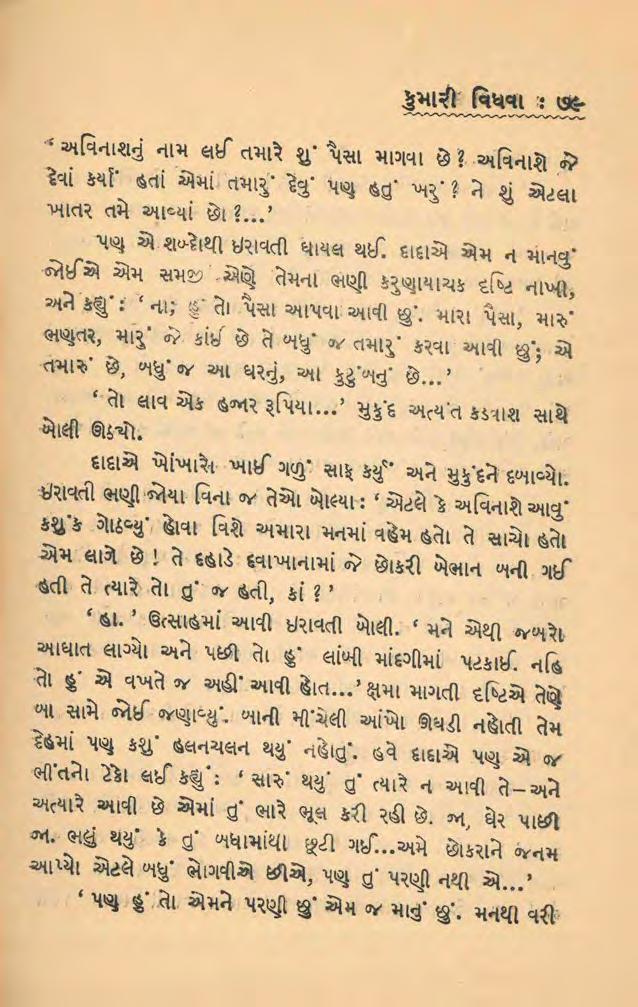 કુમારી વિધવા : ૭૯
‘ અવિનાશનું નામ લઈ તમારે શું પૈસા માગવા છે ? અવિનાશે જે
દેવાં કર્યાં હતાં એમાં તમારું દેવું પણ હતું ખરું ? ને શું એટલા
ખાતર તમે આવ્યાં છો ?...’
પણ એ શબ્દોથી ઇરાવતી ઘાયલ થઈ. દાદાએ એમ ન માનવું
જોઈએ એમ સમજી એણે તેમના ભણી કરુણાયાચક દૃષ્ટિ નાખી,
અને કહ્યું : ‘ ના; હું તો પૈસા આપવા આવી છું. મારા પૈસા, મારું
ભણતર, મારું જે કાંઈ છે તે બધું જ તમારું કરવા આવી છું; એ
તમારું છે, બધું જ આ ઘરનું, આ કુટુંબનું છે...’
‘ તો લાવ એક હજાર રૂપિયા...’ મુકુંદ અત્યંત કડવાશ સાથે
બોલી ઊઠ્યો.
દાદાએ ખોંખારો ખાઈ ગળું સાફ કર્યું અને મુકુંદને દબાવ્યો.
ઇરાવતી ભણી જોયા વિના જ તેઓ બોલ્યા : ‘ એટલે કે અવિનાશે આવું
કશુંક ગોઠવ્યું હોવા વિશે અમારા મનમાં વહેમ હતો તે સાચો હતો
એમ લાગે છે ! તે દહાડે દવાખાનામાં જે છોકરી બેભાન બની ગઈ
હતી તે ત્યારે તો તું જ હતી, કાં ?’
‘ હા. ’ ઉત્સાહમાં આવી ઇરાવતી બોલી. ‘ મને એથી જબરો
આઘાત લાગ્યો અને પછી તો હું લાંબી માંદગીમાં પટકાઈ. નહિ
તો હું એ વખતે જ અહીં આવી હોત...’ ક્ષમા માગતી દૃષ્ટિએ તેણે
બા સામે જોઈ જણાવ્યું. બાની મીંચેલી આંખો ઊઘડી નહોતી તેમ
દેહમાં પણ કશું હલનચલન થયું નહોતું. હવે દાદાએ પણ એ જ
ભીંતનો ટેકો લઈ કહ્યું : ‘ સારું થયું તું ત્યારે ન આવી તે – અને
અત્યારે આવી છે એમાં તું ભારે ભૂલ કરી રહી છે. જા, ઘેર પાછી
જા. ભલું થયું કે તું બધામાંથી છૂટી ગઈ...અમે છોકરાને જનમ
આપ્યો એટલે બધું ભોગવીએ છીએ, પણ તું પરણી નથી એ...’
‘ પણ હું તો એમને પરણી છું એમ જ માનું છું. મનથી વરી